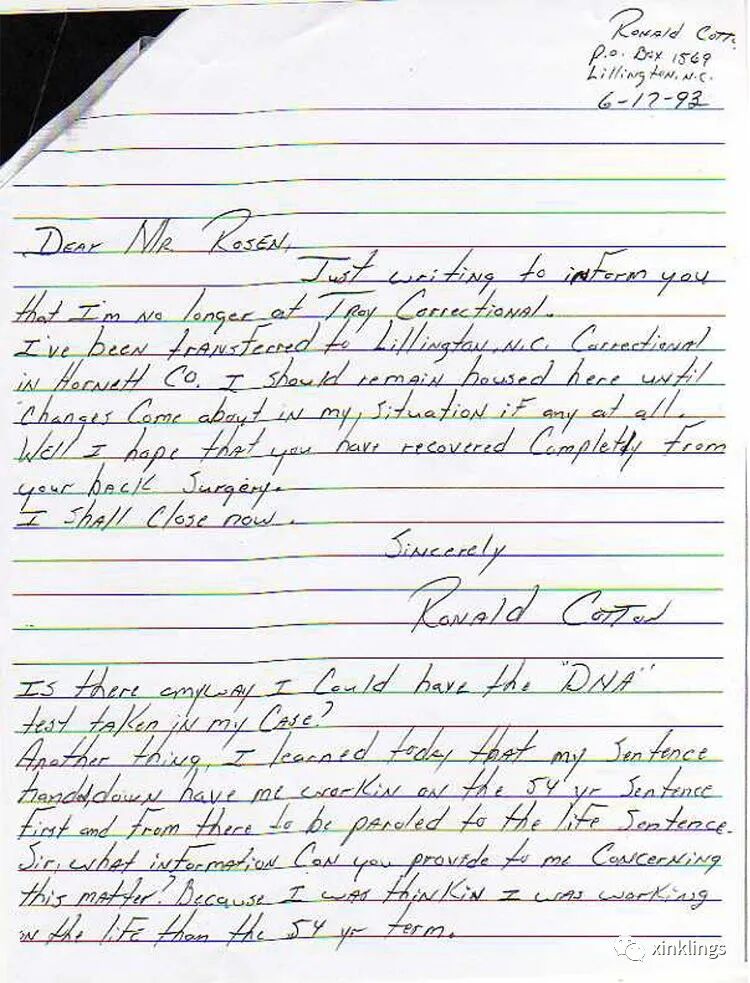 Ronald Cott
P.O. Box 1569
Lillington, N.C.
6-17-93
Dear Mr. Rosen,
Just writing to inform you
that I'm no longer at Troy Correctional.
I've been transferred to Lillington, N.C. Correctional
in Hornett Co. I should remain housed here until
changes come about in my, situation if any at all.
Well I hope that you have recovered Completly from
your back surgery.
I shall close now.
Sincerely
Ronald Cotton
Is there anyway I could have the "DNA"
test taken in my case?
Another thing, I learned today that my sentence
handddown have me workin on the 54 yr sentence
first and from there to be paroled to the life sentence.
Sir, what information can you provide to me concerning
this matter? Because I was thinkin I was working
on the life than the 54 yr term.
xinklings